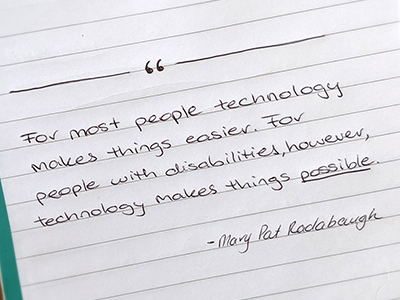 “
For most people technology
makes things easier. For
people with disabilities, however,
technology makes things possible.
- Mary Pat Radabaugh